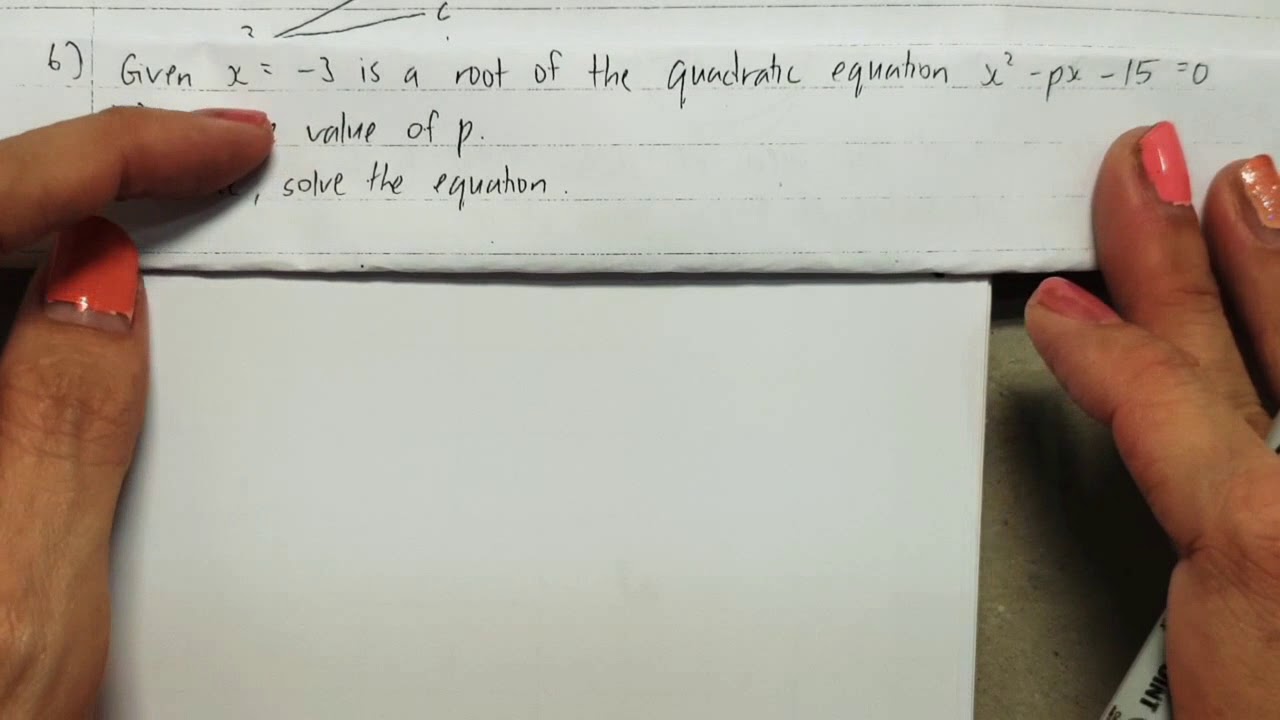 C
6) Given x = -3 is a root of the quadratic equation x² - px - 15 = 0
value of p.
, solve the equation.